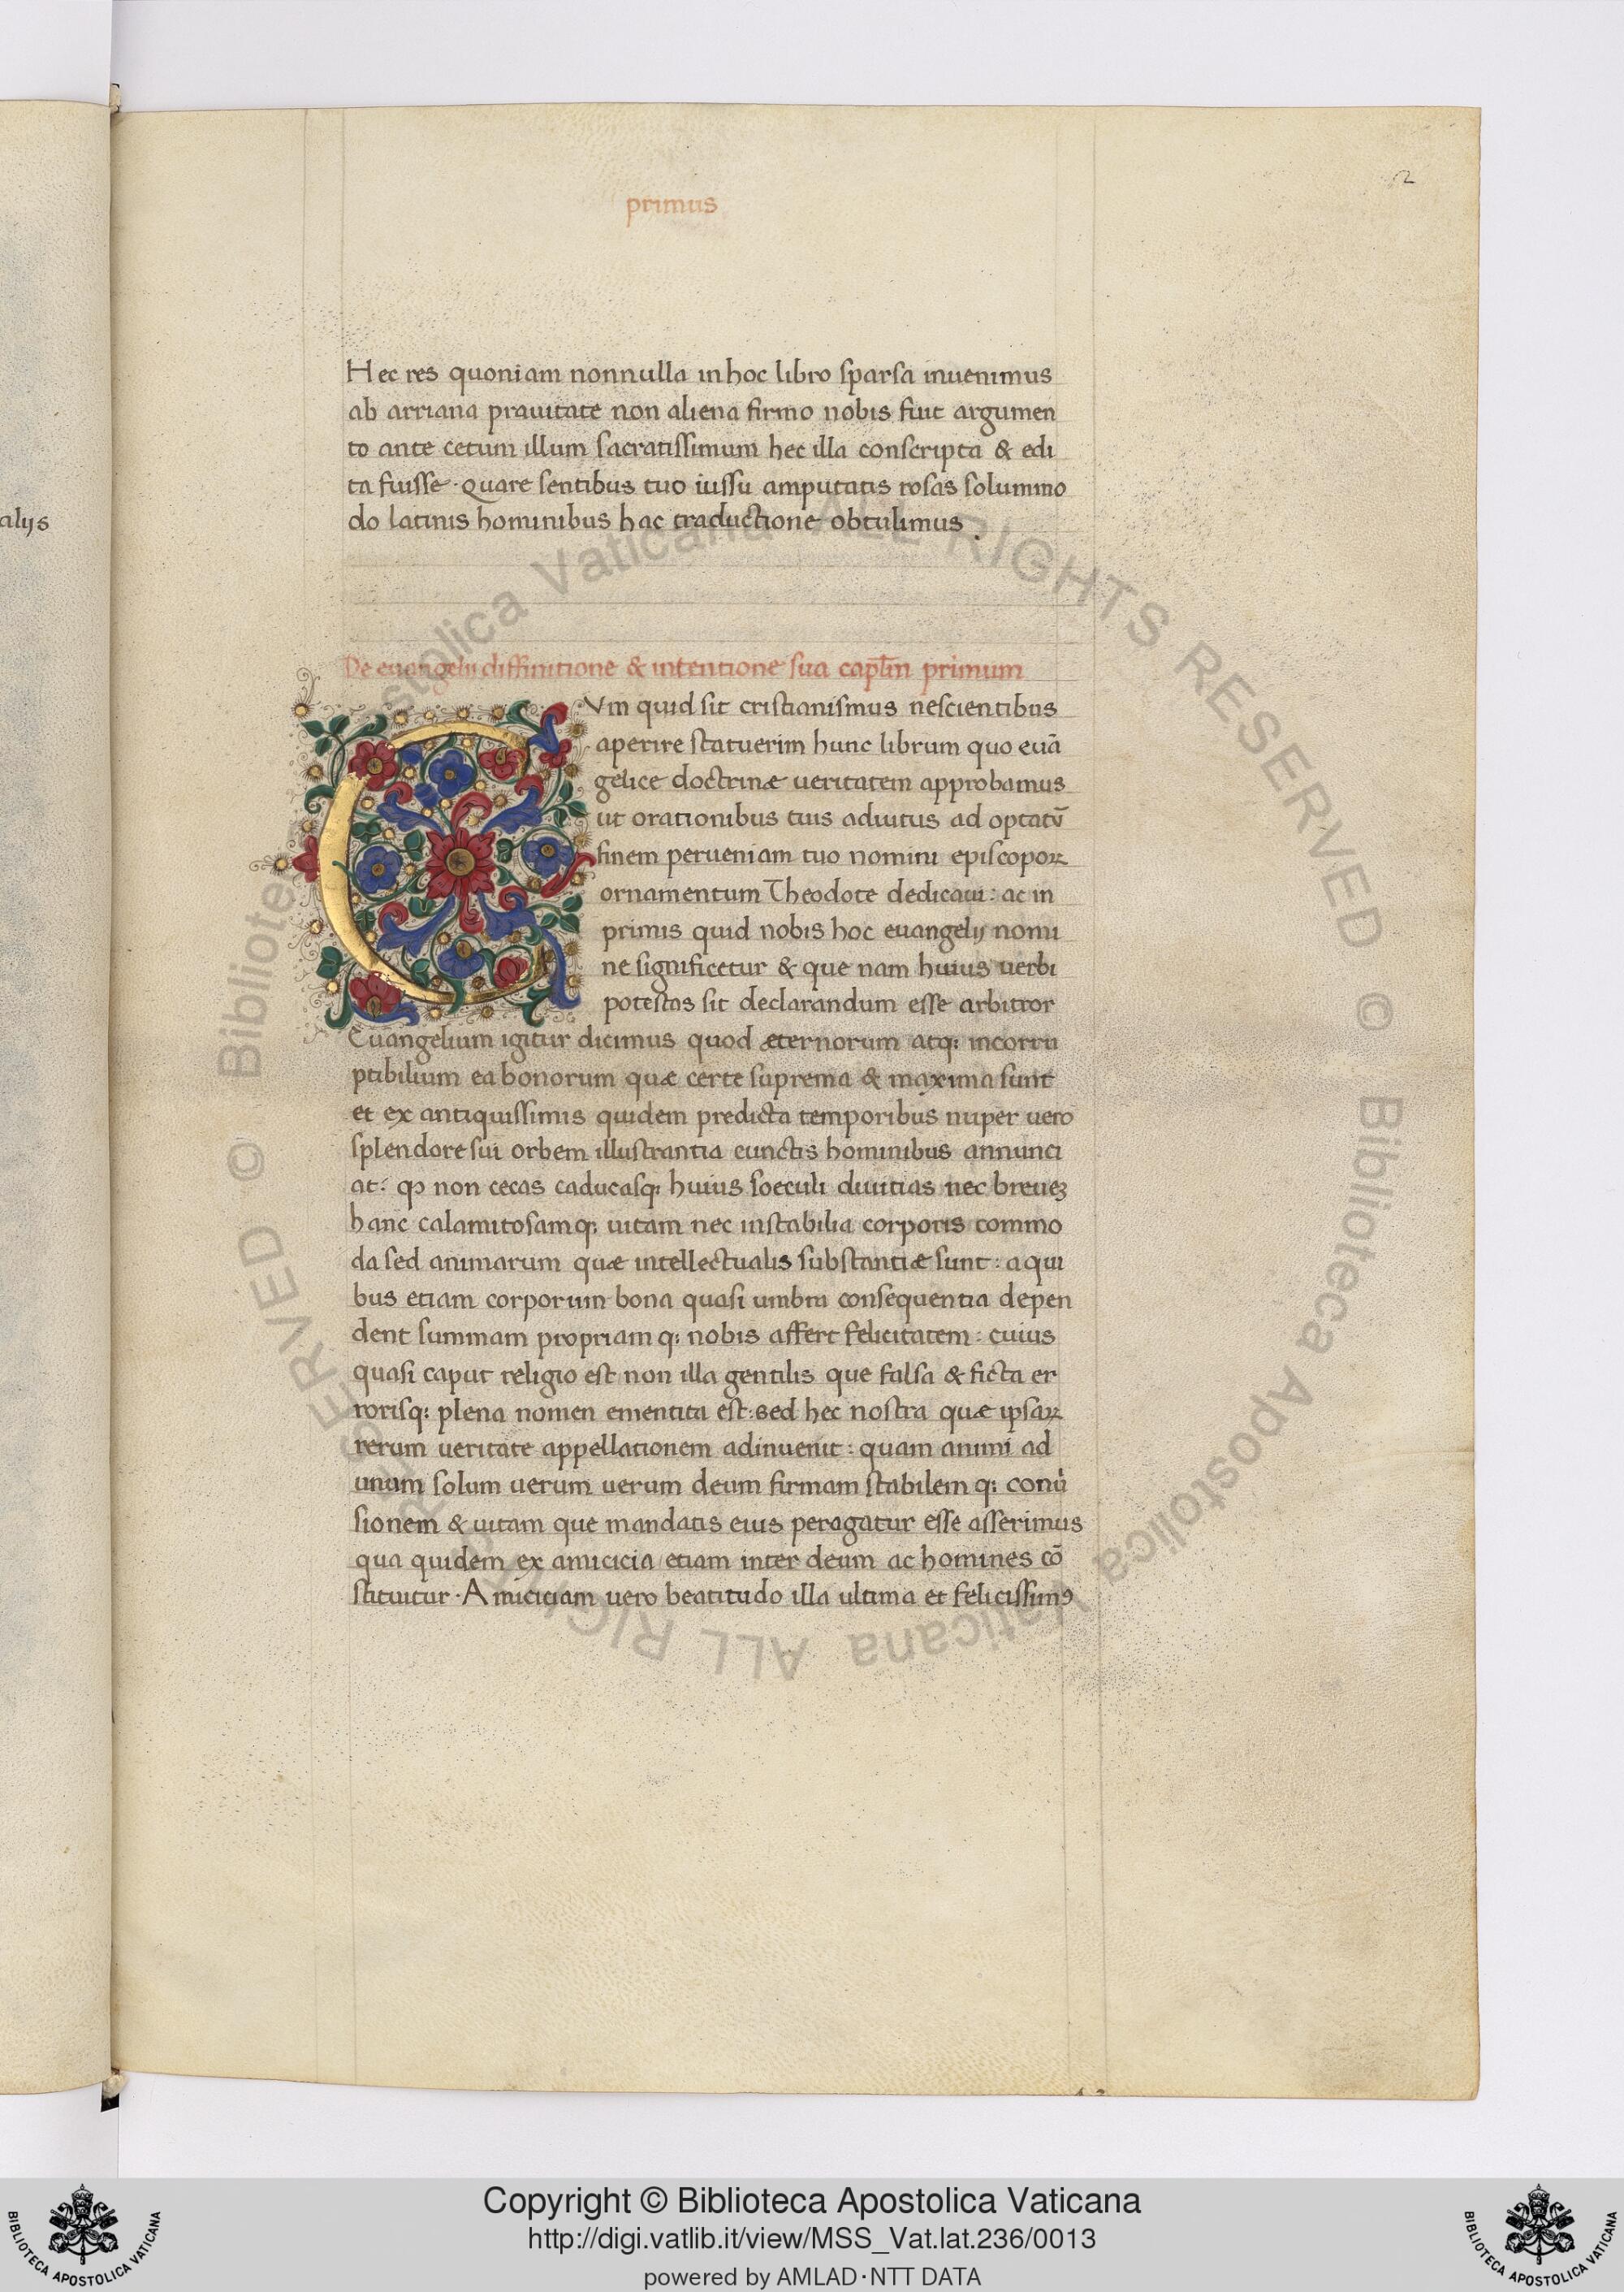 2
primus
alijs
Hec res quoniam nonnulla in hoc libro sparsa inuenimus
ab arriana prauitate non aliena firmo nobis fuit argumen
to ante cetum illum sacratissimum hec illa conscripta & edi
ta fuisse · Quare sentibus tuo iussu amputatis rosas solummo
do latinis hominibus hac traductione obtulimus .
De euangelij diffinitione & intentione sua cap̄lm̄ primum
CVm quid sit cristianismus nescientibus
aperire statuerim hunc librum quo euā
gelice doctrinæ ueritatem approbamus
ut orationibus tuis adiutus ad optatū
finem perueniam tuo nomini episcopoꝝ
ornamentum Theodote dedicaui : ac in
primis quid nobis hoc euangelij nomi
ne significetur & que nam huius uerbi
potestas sit declarandum esse arbitror
Euangelium igitur dicimus quod æternorum atq; incorru
ptibilium ea bonorum quæ certe suprema & maxima sunt
et ex antiquissimis quidem predicta temporibus nuper uero
splendore sui orbem illustrantia cunctis hominibus annunci
at : ꝙ non cecas caducasq; huius sœculi diuitias nec breueꝫ
hanc calamitosamq; uitam nec instabilia corporis commo
da sed animarum quæ intellectualis substantiæ sunt : a qui
bus etiam corporum bona quasi umbra consequentia depen
dent summam propriamq; nobis affert felicitatem : cuius
quasi caput religio est non illa gentilis que falsa & ficta er
rorisq; plena nomen ementita est : sed hec nostra quæ ipsaꝝ
rerum ueritate appellationem adinuenit : quam animi ad
unum solum uerum uerum deum firmam stabilemq; conũ
sionem & uitam que mandatis eius peragatur esse asserimus
qua quidem ex amicicia etiam inter deum ac homines cō
stituitur · Amiciciam uero beatitudo illa ultima et felicissimꝰ
© Biblioteca Apostolica Vaticana ALL RIGHTS RESERVED © Biblioteca Apostolica Vaticana ALL RIGHTS RESERVED
Copyright © Biblioteca Apostolica Vaticana
http://digi.vatlib.it/view/MSS_Vat.lat.236/0013
powered by AMLAD·NTT DATA
BIBLIOTECA APOSTOLICA VATICANA
BIBLIOTECA APOSTOLICA VATICANA